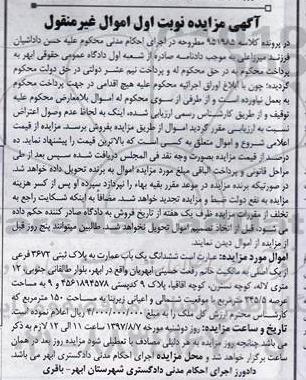 آگهی مزایده نوبت اول اموال غیر منقول
در پرونده کلاسه ۹۵۱۹۸۵ مطروحه در اجرای احکام مدنی محکوم علیه حسن داداشیان
فرزند میرزاعلی به موجب دادنامه صادره از شعبه اول دادگاه عمومی حقوقی ابهر به
پرداخت محکوم به در حق محکوم له و پرداخت نیم عشر دولتی در حق دولت محکوم
گردیده؛ چون با ابلاغ اوراق اجرائیه محکوم علیه هیچ اقدامی در جهت پرداخت محکوم
به بعمل نیاورده است و از طرفی از سوی محکوم له اموال بلامعارض محکوم علیه
توقیف و از طریق کارشناس رسمی ارزیابی شده، اینک به لحاظ عدم وصول اعتراض
نسبت به ارزیابی مقرر گردید اموال از طریق مزایده بفروش برسد. مزایده از قیمت
اعلامی شروع و اموال متعلق به کسی است که بالاترین قیمت را پیشنهاد نماید. ده
درصد از قیمت مزایده بصورت وجه نقد فی المجلس دریافت شده سپس بعد از طی
مراحل قانونی و پرداخت الباقی مبلغ مورد مزایده اموال به برنده تحویل داده خواهد شد.
در صورتیکه برنده مزایده در موعد مقرر بقیه بهاء را نپردازد سپرده او پس از کسر هزینه
مزایده به نفع دولت ضبط و مزایده تجدید خواهد شد. مضافاً به اینکه شکایت راجع به
تخلف از مقررات مزایده ظرف یک هفته از تاریخ فروش به دادگاه صادر کننده حکم داده
می شود، قبل از اتخاذ تصمیم اموال تحویل نخواهد شد. طالبین میتوانند پنج روز قبل
از مزایده از اموال دیدن نمایند.
اموال مورد مزایده: عبارت است ششدانگ یک باب عمارت به پلاک ثبتی ۳۶۷۲ فرعی
از یک اصلی به مالکیت خانم رفعت خمسئی ابهریان واقع در ابهر، بلوار طالقانی جنوبی، ۱۲
متری لاله، کوچه نسترن، کوچه اقاقیا، پلاک ۹ کدپستی ۴۵۶۱۸۹۴۵۷۸ و ۹ به مساحت
عرصه ۲۴۵/۵ مترمربع با موقعیت شمالی و اعیانی زیربنا به مساحت ۱۵۰ مترمربع که
کارشناس محترم ارزش کل ملک را به مبلغ ۴/۰۰۰/۰۰۰/۰۰۰ ریال تعیین نموده است.
تاریخ و ساعت مزایده: روز دوشنبه مورخه ۱۳۹۷/۸/۷ ساعت ۱۱ الی ۱۲ لازم به ذکر
می باشد چنانچه روز مزایده به هر دلیلی مصادف با تعطیلی شود مزایده روز بعد در همان
ساعت برگزار خواهد شد و محل مزایده اجرای احکام مدنی دادگستری ابهر می باشد.
دادورز اجرای احکام مدنی دادگستری شهرستان ابهر- باقری